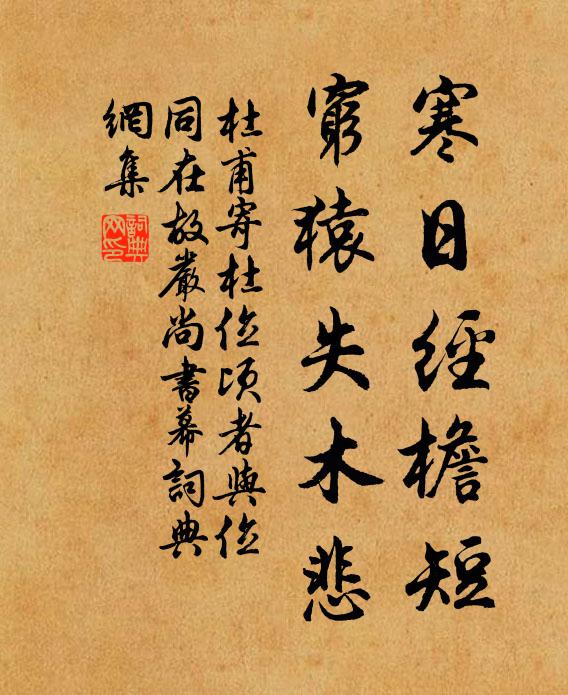 寒日經檐短
窮猿失木悲
杜甫寄杜位頃者與位
同在故嚴尚書幕詞典
網集
詞典
网印